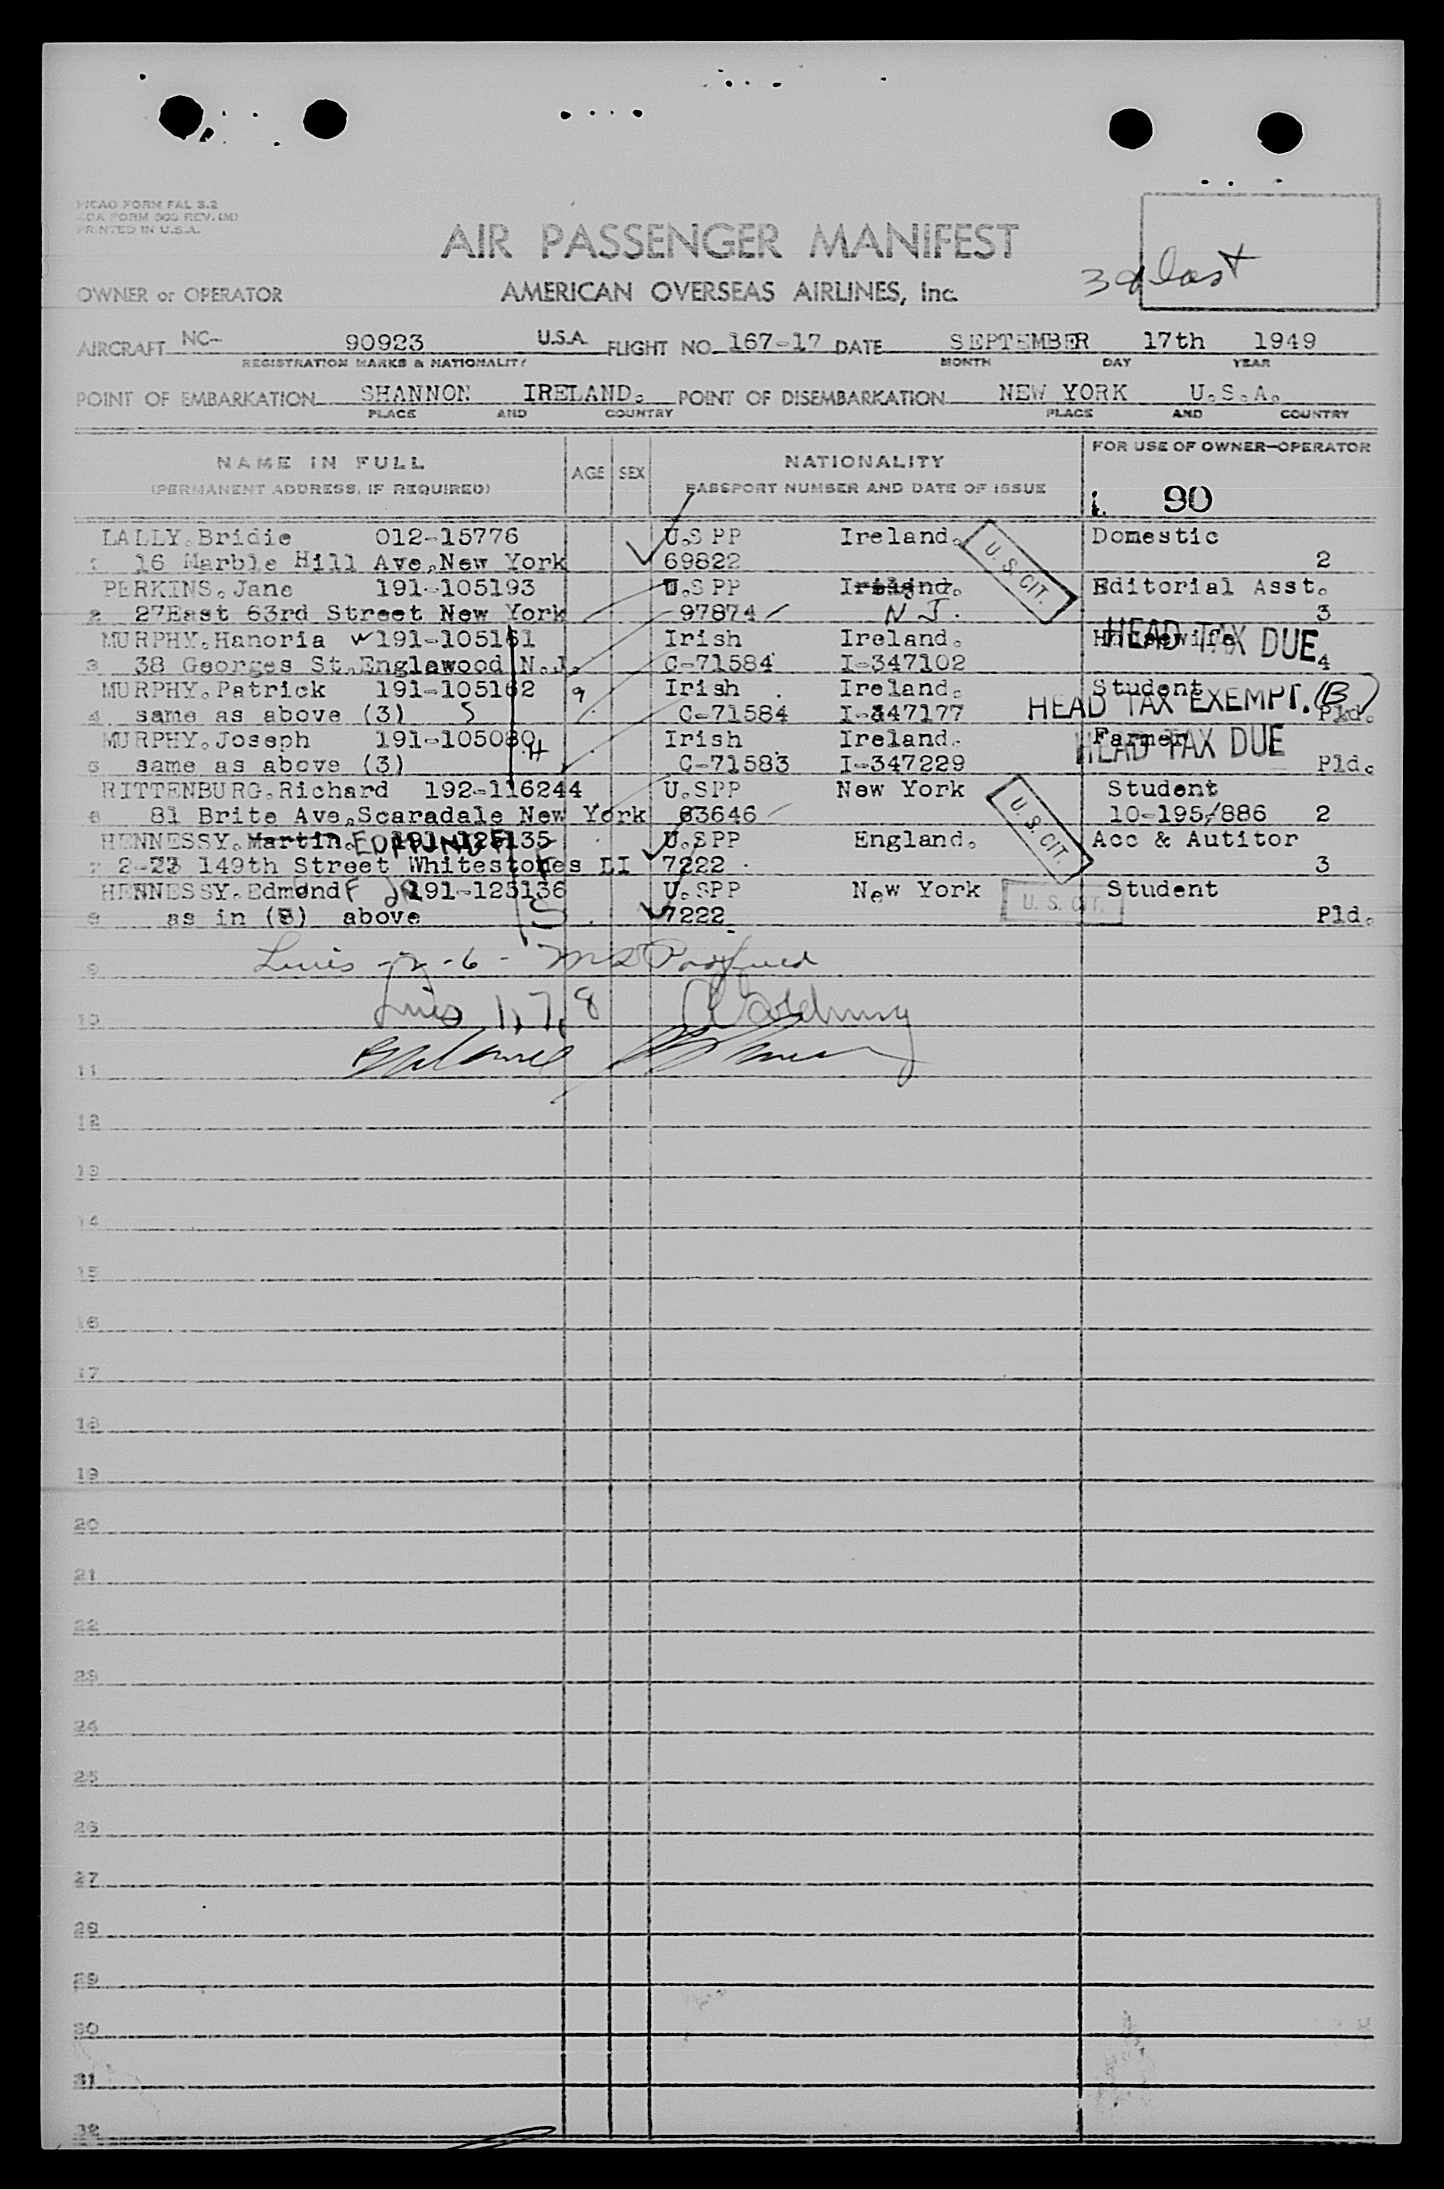 ICAO FORM FAL S.2
PRINTED IN U.S.A.
AIR PASSENGER MANIFEST
OWNER or OPERATOR AMERICAN OVERSEAS AIRLINES, Inc.
last
AIRCRAFT NC- 90923 U.S.A. FLIGHT NO. 167-17 DATE SEPTEMBER 17th 1949
REGISTRATION MARKS & NATIONALITY MONTH DAY YEAR
POINT OF EMBARKATION SHANNON IRELAND. POINT OF DISEMBARKATION NEW YORK U.S.A.
PLACE AND COUNTRY PLACE AND COUNTRY
NAME IN FULL AGE SEX NATIONALITY FOR USE OF OWNER-OPERATOR
(PERMANENT ADDRESS, IF REQUIRED) PASSPORT NUMBER AND DATE OF ISSUE
90
LALLY.Bridie 012-15776 U.S PP Ireland. Domestic
1 16 Marble Hill Ave.New York 69822 U. S. CIT. 2
PERKINS.Jane 191-105193 U.S PP Ireland. Editorial Asst.
2 27East 63rd Street New York 97874 N J. 3
MURPHY.Hanoria 191-105161 Irish Ireland. Housewife
3 38 Georges St.Englewood N.J. C-71584 I-347102 HEAD TAX DUE 4
MURPHY.Patrick 191-105162 9 Irish Ireland. Student
4 same as above (3) S C-71584 I-347177 HEAD TAX EXEMPT. (B) Pld.
MURPHY.Joseph 191-105080 H Irish Ireland. Farmer HEAD TAX DUE
5 same as above (3) C-71583 I-347229 Pld.
RITTENBURG.Richard 192-116244 U.SPP New York Student
6 81 Brite Ave.Scaradale New York 63646 U. S. CIT. 10-195/886 2
HENNESSY.Martin. EDMUND F 191-125135 U.SPP England. Acc & Autitor
7 2-23 149th Street Whitestones LI 7222 3
HENNESSY.Edmond F JR 191-125136 U.SPP New York U. S. CIT. Student
8 as in (8) above 7222 Pld.
9 Lines - 2 - 6 -
10 Lines 1, 7, 8
11
12
13
14
15
16
17
18
19
20
21
22
23
24
25
26
27
28
29
30
31
32